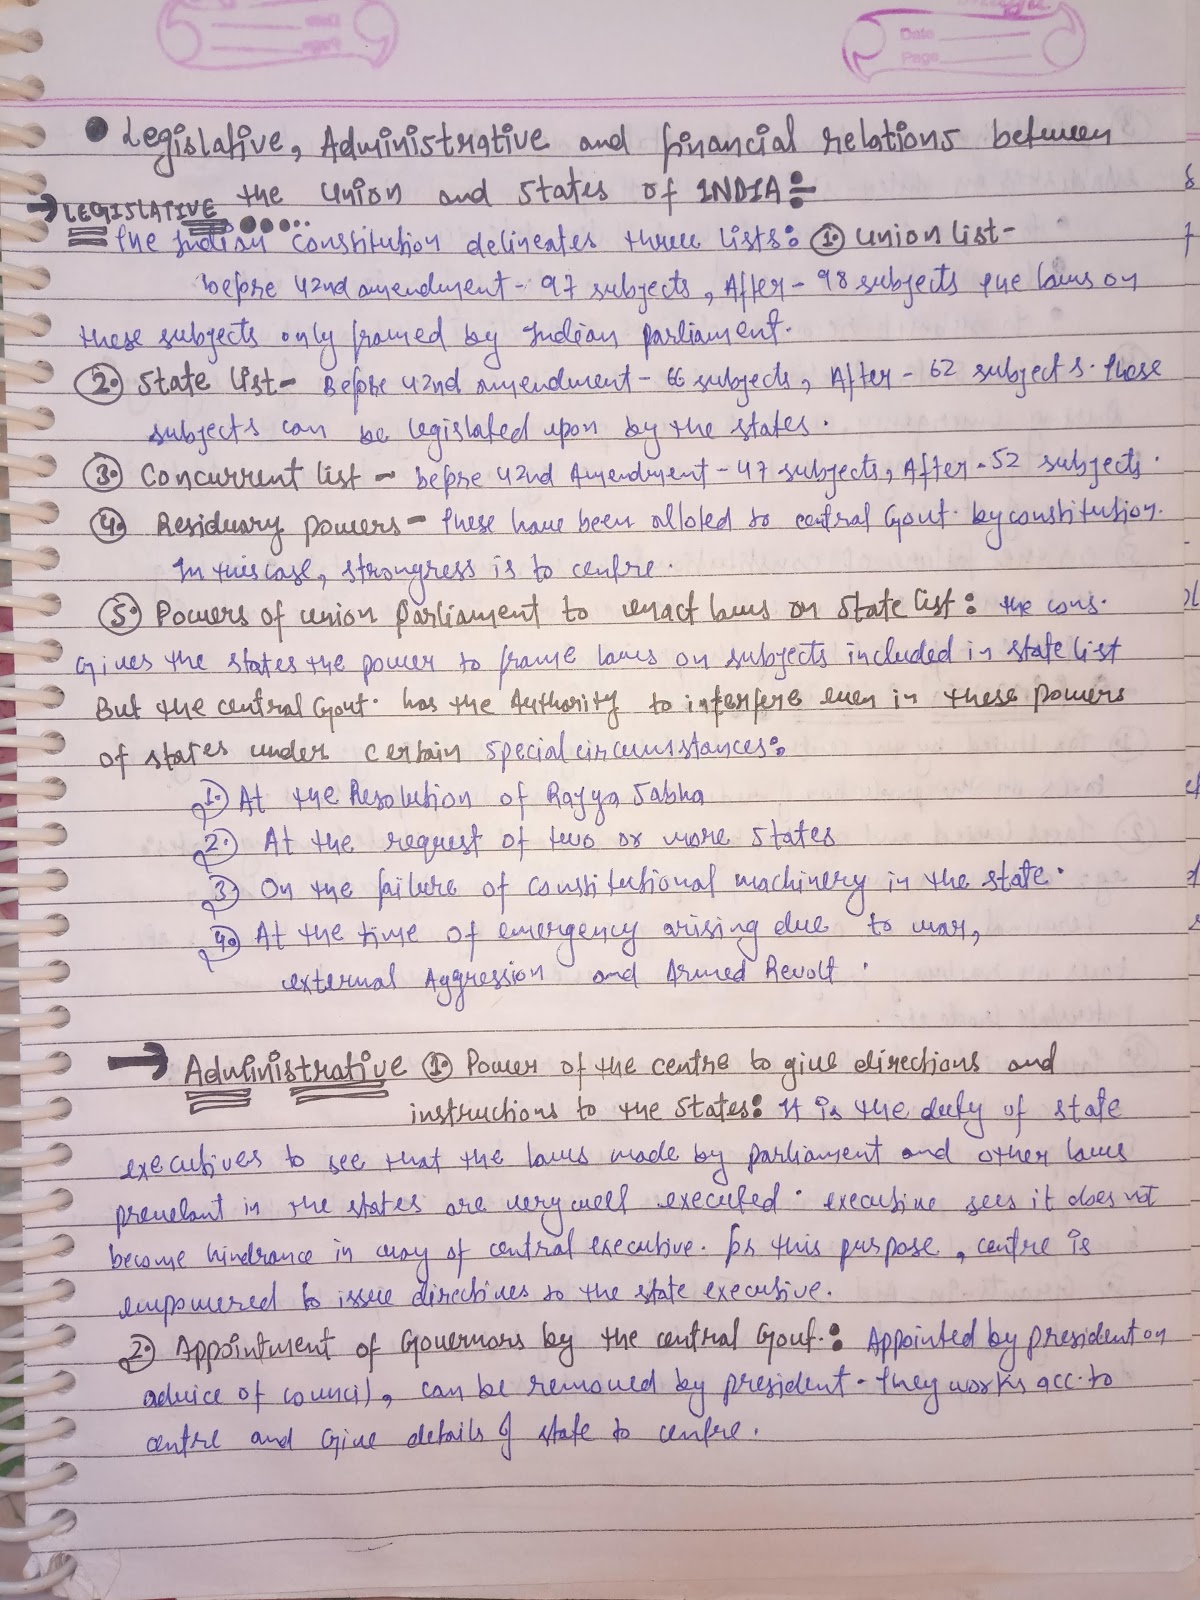 Date
Page
• Legislative, Administrative and financial relations between
the Union and States of INDIA :-
→ LEGISLATIVE
The Indian constitution delineates three lists: 1. Union list-
before 42nd amendment- 97 subjects, After- 98 subjects the laws on
these subjects only framed by Indian parliament.
2. State list- Before 42nd amendment- 66 subjects, After- 62 subjects. These
subjects can be legislated upon by the states.
3. Concurrent list - before 42nd Amendment- 47 subjects, After- 52 subjects.
4. Residuary powers- These have been alloted to central Govt. by constitution.
In this case, strongress is to centre.
5. Powers of union Parliament to enact laws on State list: the cons.
gives the states the power to frame laws on subjects included in state list
But the central Govt. has the Authority to interfere even in these powers
of states under certain special circumstances:
1. At the Resolution of Rajya Sabha
2. At the request of two or more States
3. On the failure of constitutional machinery in the state.
4. At the time of emergency arising due to war,
external Aggression and Armed Revolt.
→ Administrative 1. Power of the centre to give directions and
instructions to the States: It is the duty of state
executives to see that the laws made by parliament and other laws
prevelant in the states are very well executed. executive sees it does not
become hindrance in way of central executive. for this purpose, centre is
empowered to issue directives to the state executive.
2. Appointment of Governors by the central Govt.: Appointed by president on
advice of council, can be removed by president. They works acc. to
centre and give details of state to centre.